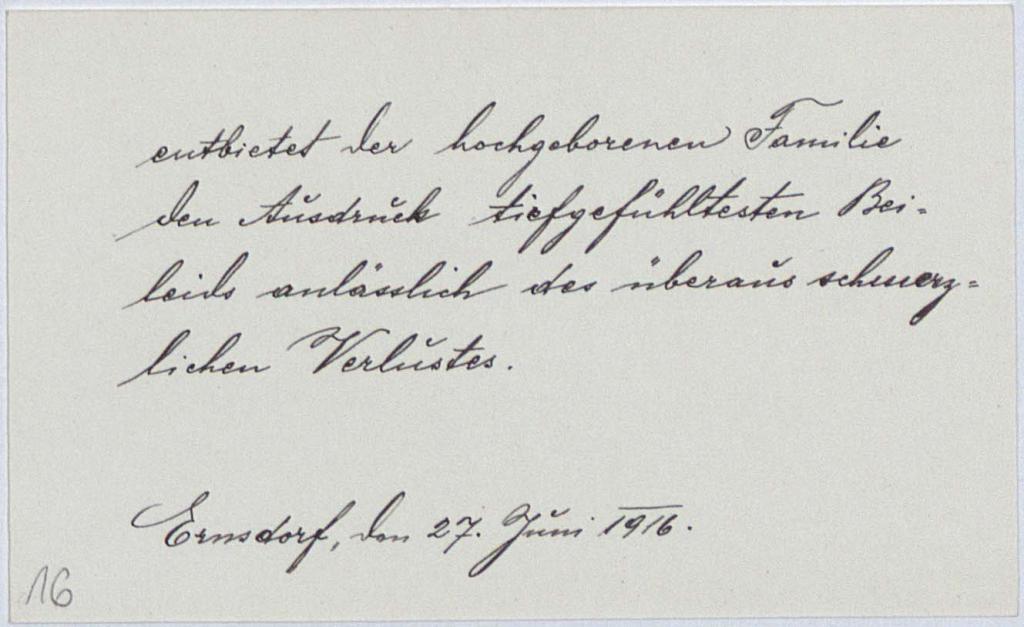 entbietet der hochgeborenen Familie
den Ausdruck tiefgefühltesten Bei-
leids anlässlich des überaus schmerz-
lichen Verlustes.
Ernsdorf, den 27. Juni 1916.
16